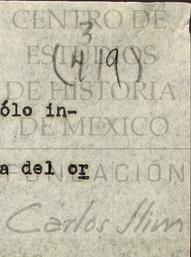 CENTRO DE
3
ESTUDIOS
(419)
DE HISTORIA
ólo in-
DE MEXICO
a del or
FUNDACIÓN
Carlos Slim